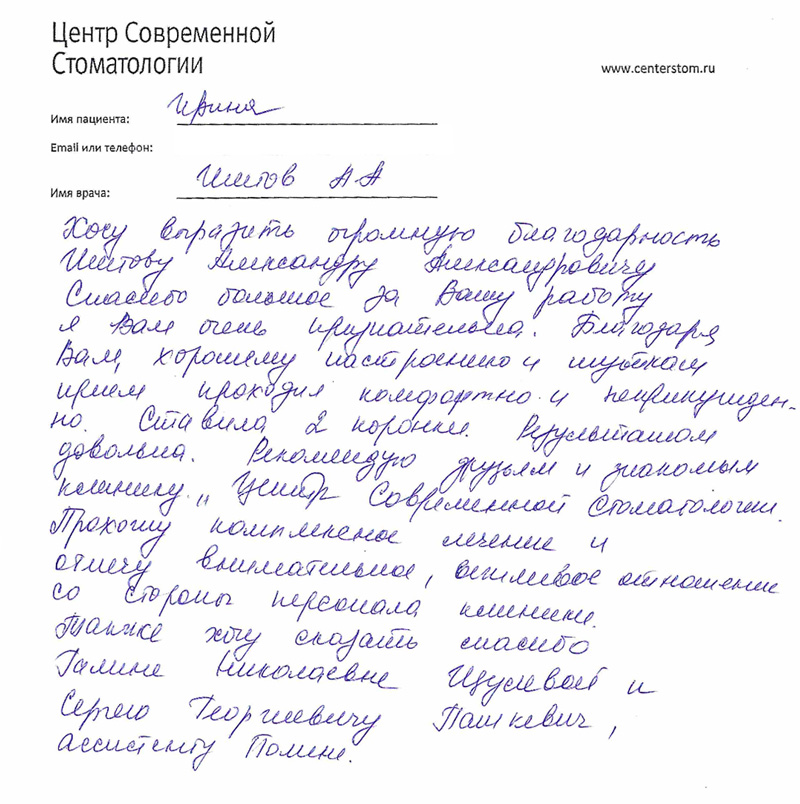 Центр Современной
Стоматологии
www.centerstom.ru
Имя пациента: Ирина
Email или телефон:
Имя врача: Шитов А А
Хочу выразить огромную благодарность
Шитову Александру Александровичу
Спасибо большое за Вашу работу
я Вам очень признательна. Благодаря
Вам, хорошему настроению и шуткам
прием проходил комфортно и непринужден-
но. Ставила 2 коронки. Результатом
довольна. Рекомендую друзьям и знакомым
клинику „Центр Современной Стоматологии.
Прохожу комплексное лечение и
отмечу внимательное, вежливое отношение
со стороны персонала клиники.
Также хочу сказать спасибо
Галине Николаевне Щулевой и
Сергею Георгиевичу Пашкевич,
ассистенту Полине.